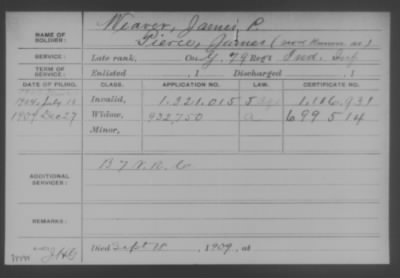 Weaver, James P.
NAME OF SOLDIER: Pierce, James (now known as)
SERVICE: Late rank, Co. G, 79 Reg't Ind. Inf
TERM OF SERVICE: Enlisted , 1 Discharged , 1
DATE OF FILING. CLASS. APPLICATION NO. LAW. CERTIFICATE NO.
1904, July Invalid, 1.321.015 1.116.931
1909 Dec 27 Widow, 932,750 a 699514
Minor,
ADDITIONAL SERVICES: B 7 V. R. C.
REMARKS:
Died Sept 18, 1909, at